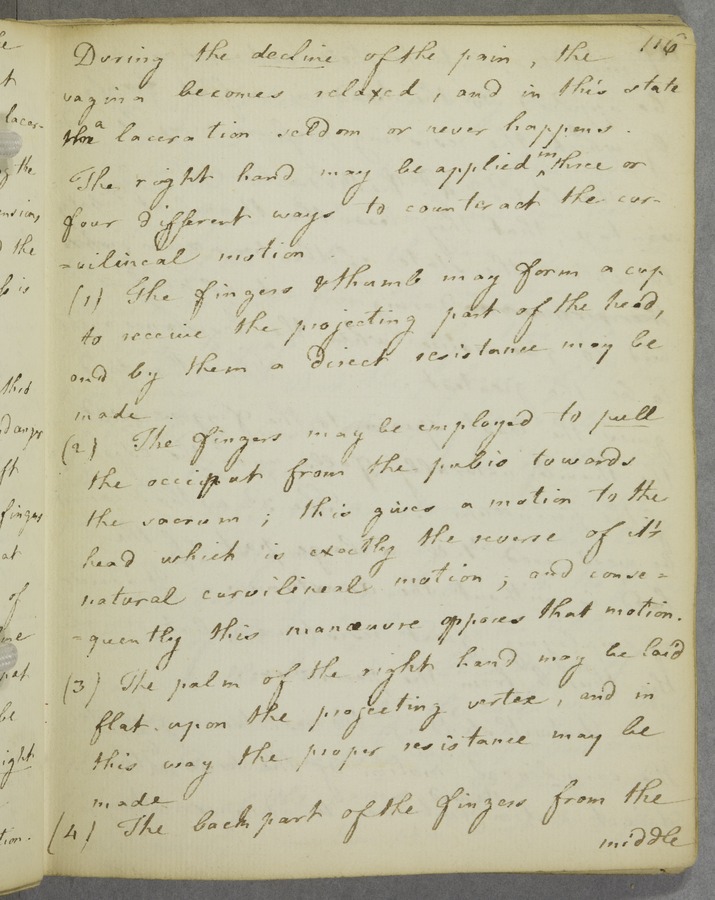 116
During the decline of the pain, the
vagina becomes relaxed, and in this state
a laceration seldom or never happens.
The right hand may be applied in three or
four different ways to counteract the cur-
=vilineal motion
(1) The fingers & thumb may form a cup
to receive the projecting part of the head,
and by them a direct resistance may be
made.
(2) The fingers may be employed to pull
the occiput from the pubis towards
the sacrum; this gives a motion to the
head which is exactly the reverse of it's
natural curvilineal motion; and conse=
=quently this manœuvre opposes that motion.
(3) The palm of the right hand may be laid
flat upon the projecting vertex, and in
this way the proper resistance may be
made
(4) The back part of the fingers from the
middle